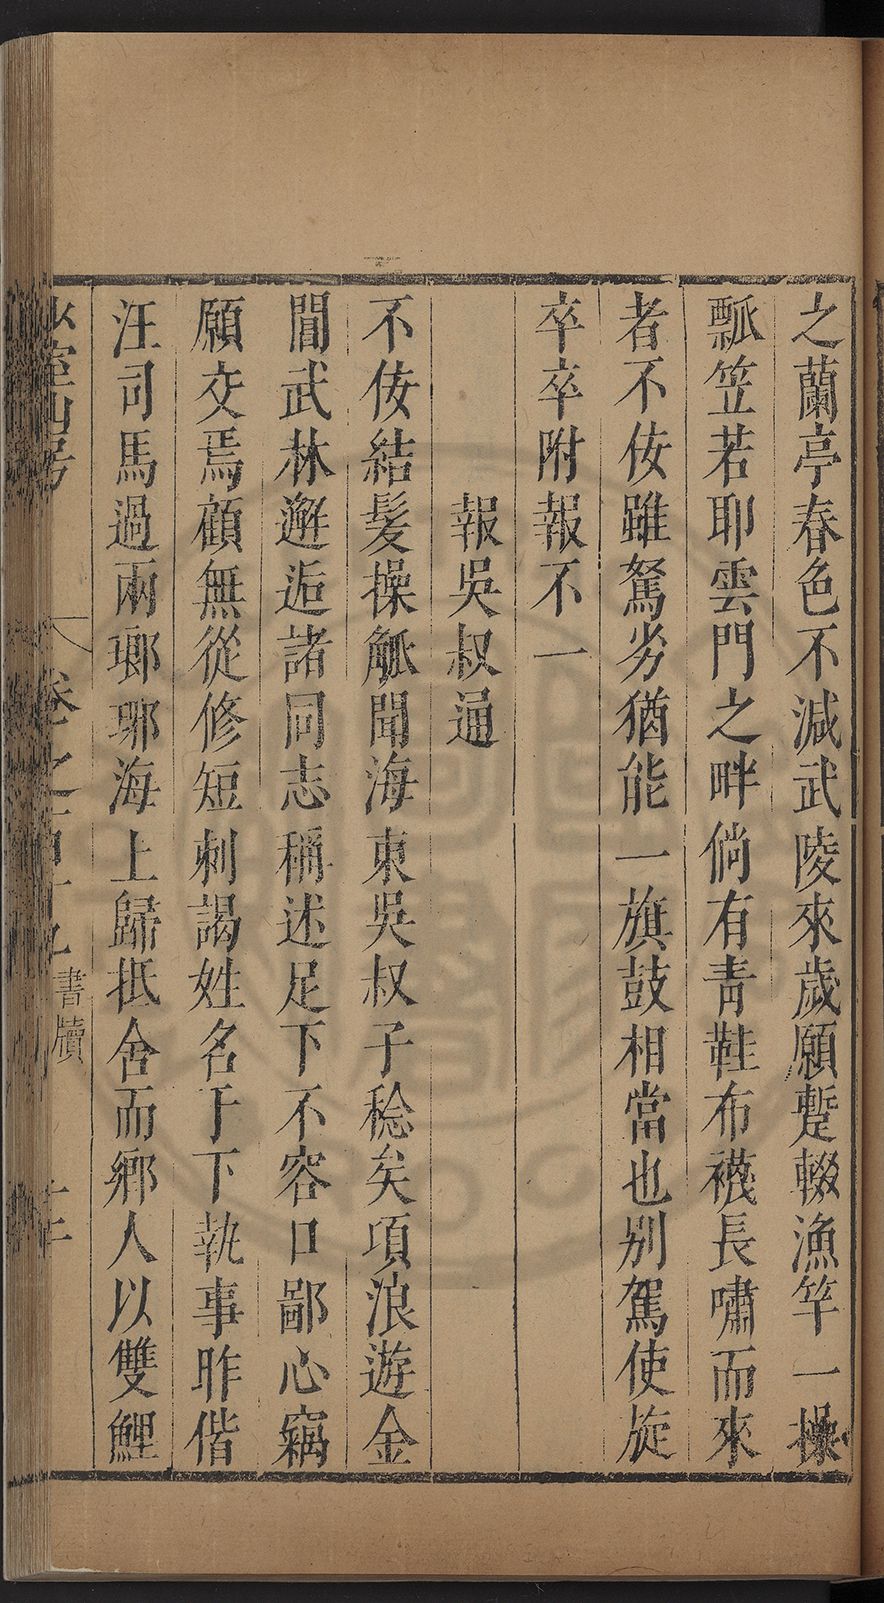 之蘭亭春色不減武陵來歲願蹔輟漁竿一操
瓢笠若耶雲門之畔倘有青鞋布襪長嘯而來
者不佞雖駑劣猶能一旗鼓相當也别駕使旋
卒卒附報不一
報吳叔通
不佞結髮操觚聞海東吳叔子稔矣項浪遊金
閶武林邂逅諸同志稱述足下不容口鄙心竊
願交焉顧無從修短刺謁姓名于下執事昨偕
汪司馬過兩瑯琊海上歸抵舍而鄉人以雙鯉
室山房
卷之百十九
書牘